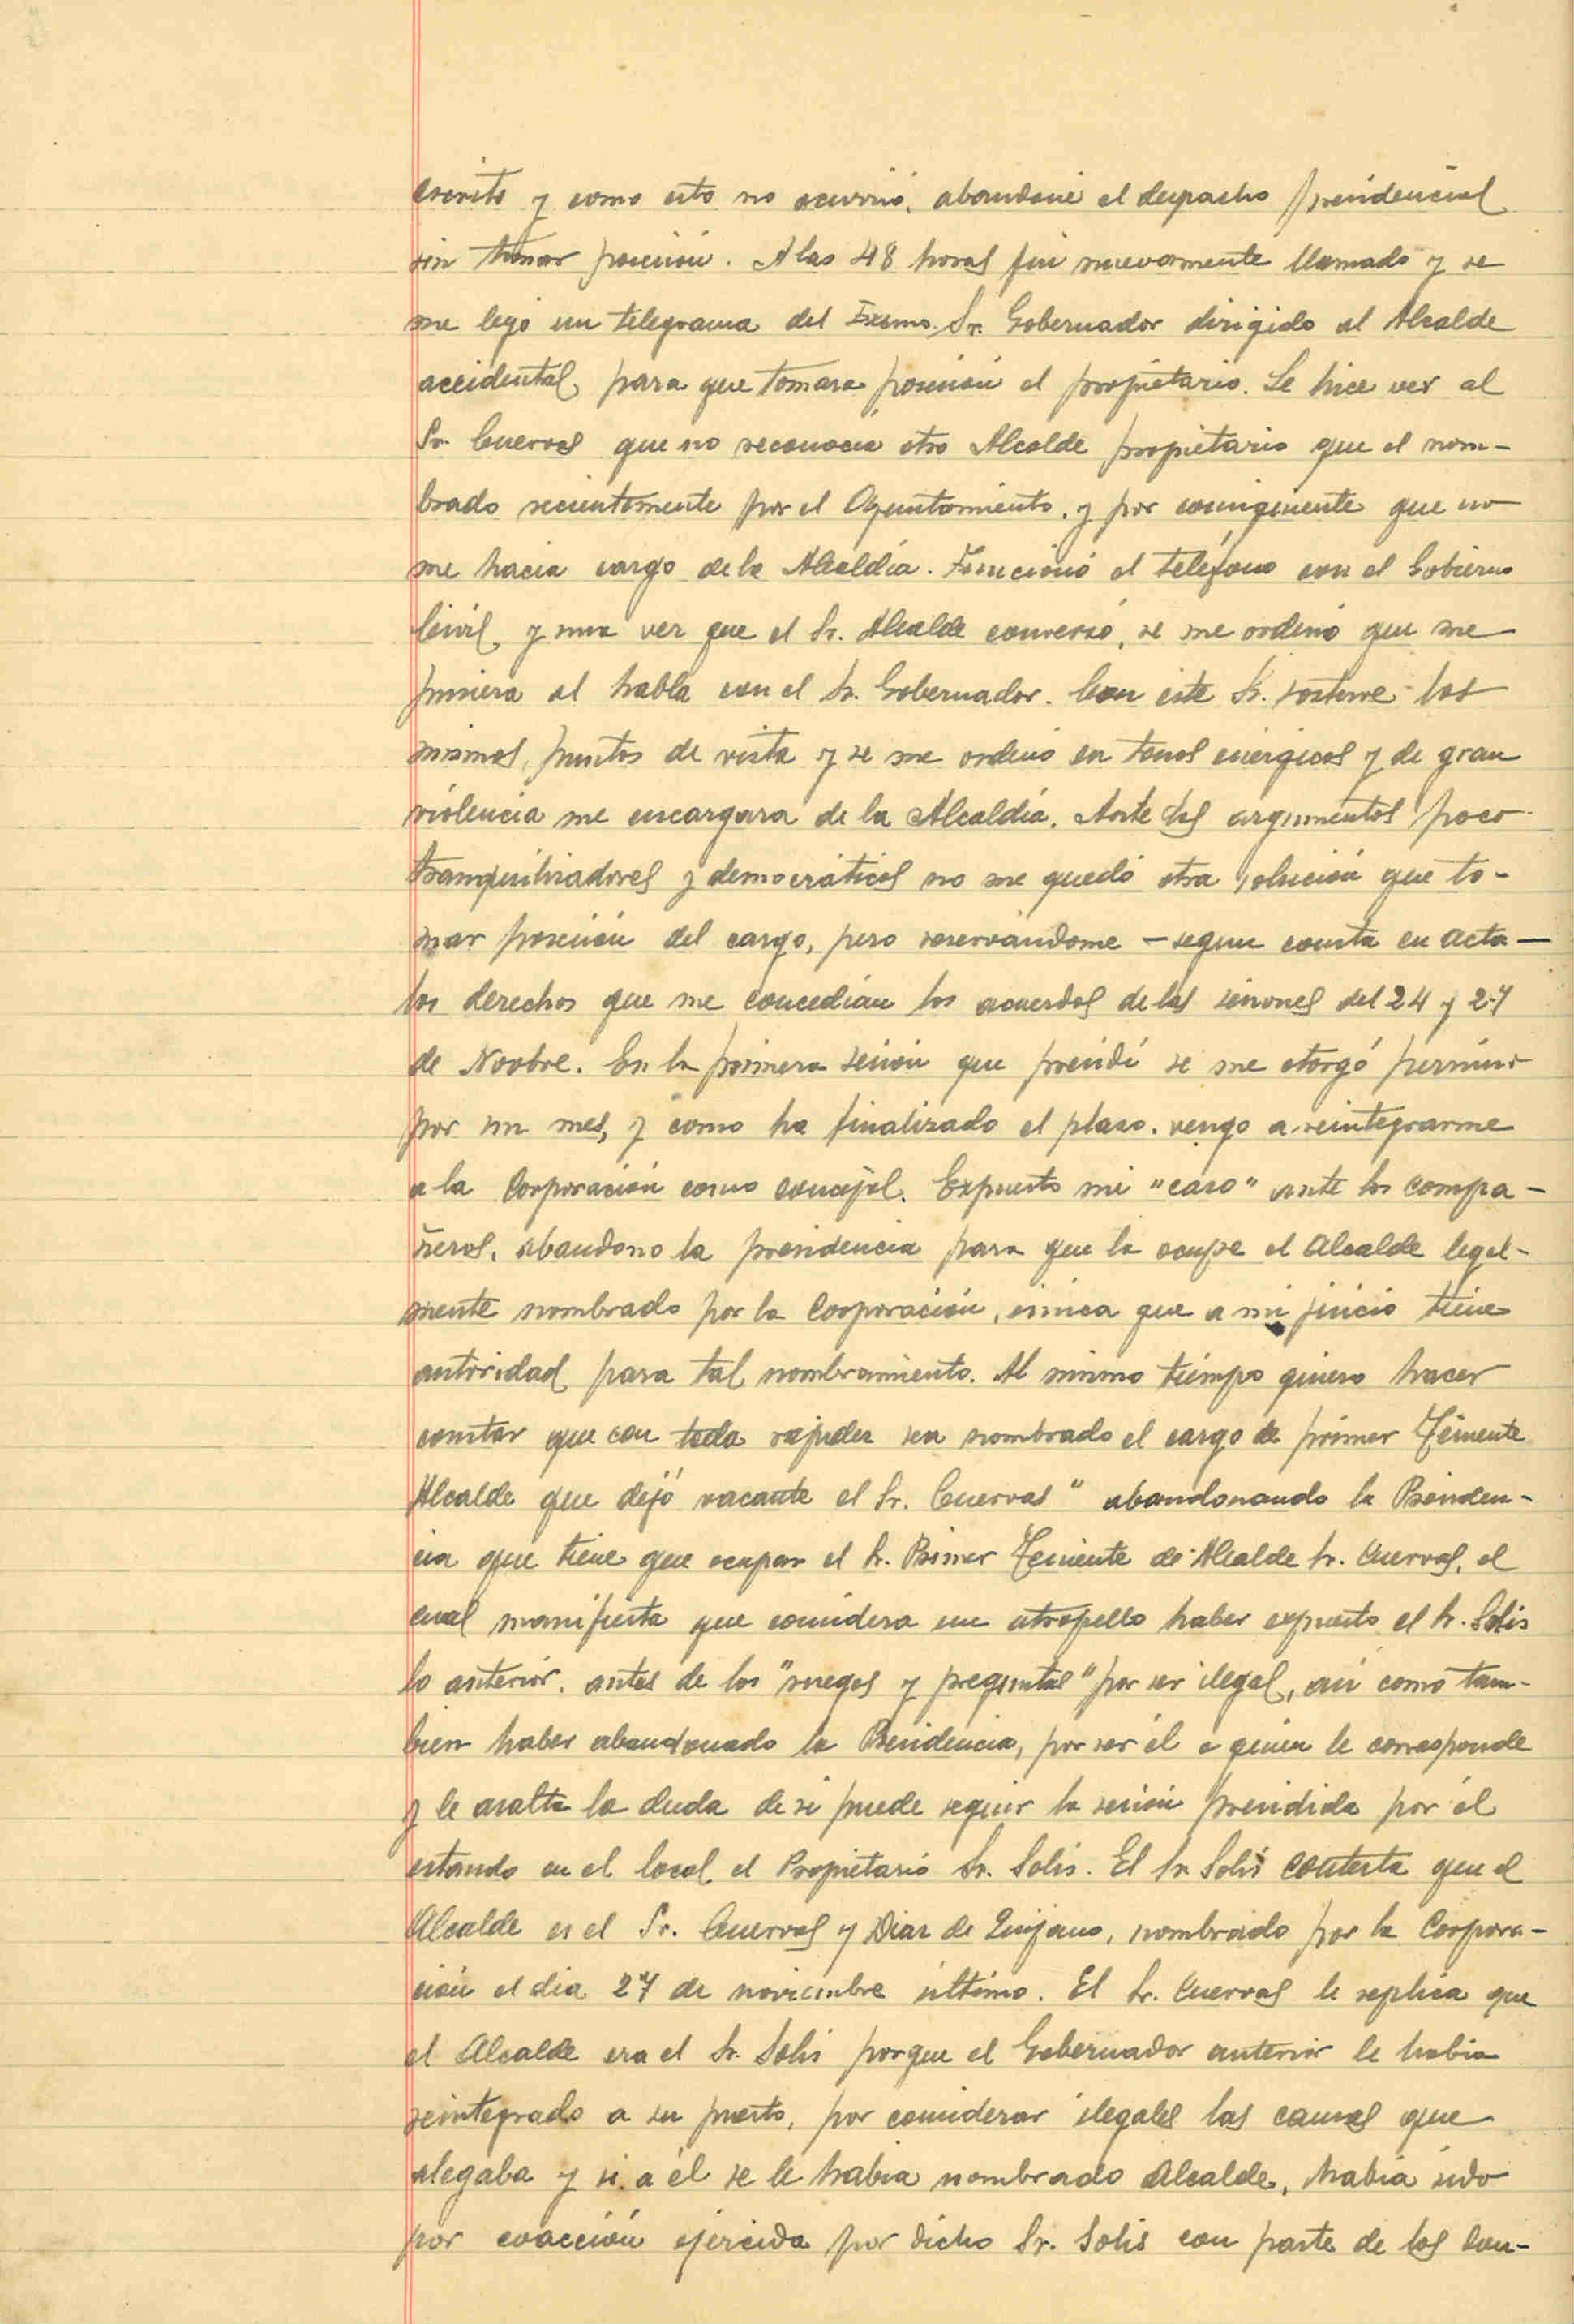 escrito y como esto no ocurrió, abandoné el despacho presidencial
sin tomar posesión. A las 48 horas fui nuevamente llamado y se
me leyó un telegrama del Excmo. Sr. Gobernador dirigido al Alcalde
accidental, para que tomara posesión el propietario. Le hice ver al
Sr. Cuervas que no reconocía otro Alcalde propietario que el nom-
brado recientemente por el Ayuntamiento, y por consiguiente que no
me hacia cargo de la Alcaldía. Funcionó el teléfono con el Gobierno
Civil, y una vez que el Sr. Alcalde conversó, se me ordenó que me
pusiera al habla con el Sr. Gobernador. Con este Sr. sostuve los
mismos puntos de vista y se me ordenó en tonos enérgicos y de gran
violencia me encargara de la Alcaldía. Ante los argumentos poco
tranquilizadores y democráticos no me quedó otra solución que to-
mar posesión del cargo, pero reservándome – segun consta en acta –
los derechos que me concedían los acuerdos de las sesiones del 24 y 27
de Novbre. En la primera sesión que presidí se me otorgó permiso
por un mes, y como ha finalizado el plazo, vengo a reintegrarme
a la Corporación como concejal. Expuesto mi "caso" ante los compa-
ñeros, abandono la presidencia para que la ocupe el Alcalde legal-
mente nombrado por la Corporación, única que a mi juicio tiene
autoridad para tal nombramiento. Al mismo tiempo quiero hacer
constar que con toda rapidez sea nombrado el cargo de primer Teniente
Alcalde que dejó vacante el Sr. Cuervas" abandonando la Presiden-
cia que tiene que ocupar el Sr. Primer Teniente de Alcalde Sr. Cuervas, el
cual manifiesta que considera un atropello haber expuesto el Sr. Solis
lo anterior, antes de los "ruegos y preguntas" por ser ilegal, asi como tam-
bien haber abandonado la Presidencia, por ser él a quien le corresponde
y le asalta la duda de si puede seguir la sesión presidida por él
estando en el local el Propietario Sr. Solis. El Sr. Solis contesta que el
Alcalde es el Sr. Cuervas y Diaz de Quijano, nombrado por la Corpora-
ción el dia 27 de noviembre último. El Sr. Cuervas le replica que
el Alcalde era el Sr. Solis porque el Gobernador anterior le habia
reintegrado a su puesto, por considerar ilegales las causas que
alegaba y si a él se le habia nombrado Alcalde, habia sido
por coacción ejercida por dicho Sr. Solis con parte de los Con-